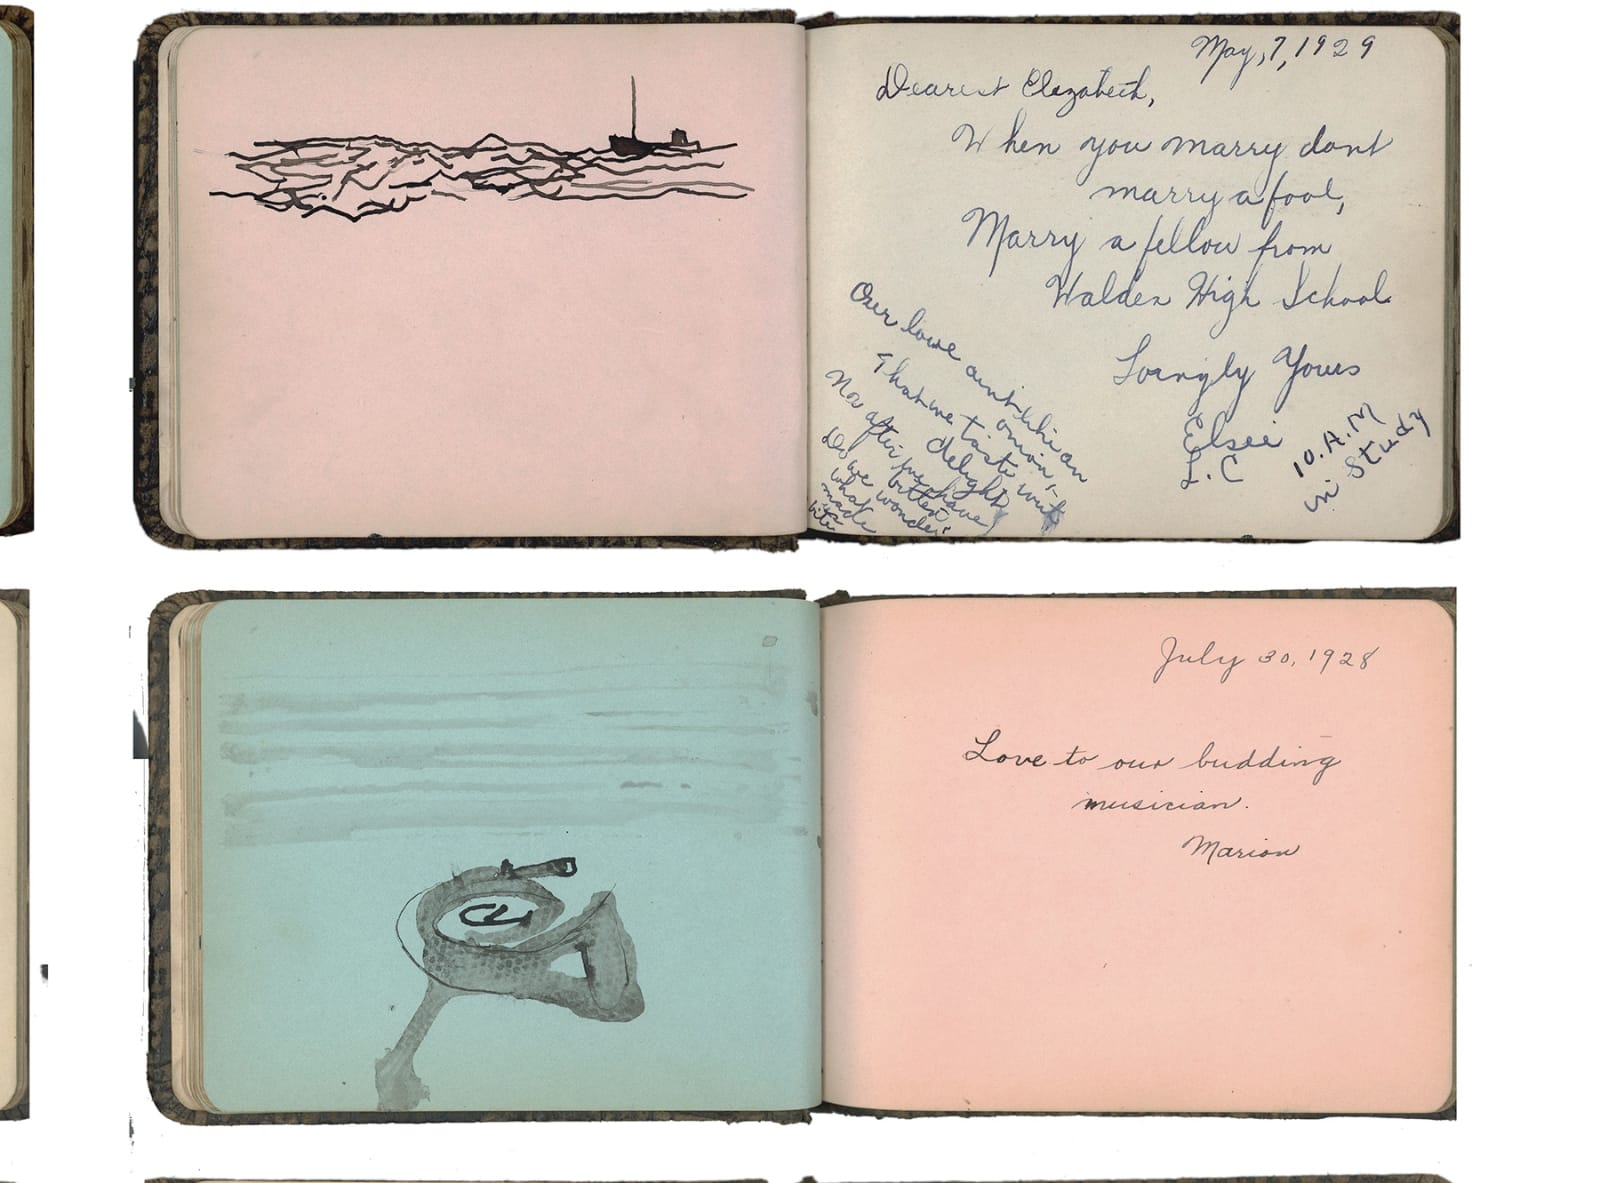 May, 7, 1929
Dearest Elezabeth,
When you marry dont
marry a fool,
Marry a fellow from
Walden High School
Lovingly Yours
Elsei
L.C
10.A.M
in Study
Our love aint like an
onion,
That we taste with
delight
Nor after we have
bitten
Do we wonder
what
made
us
bite
July 30, 1928
Love to our budding
musician.
Marion